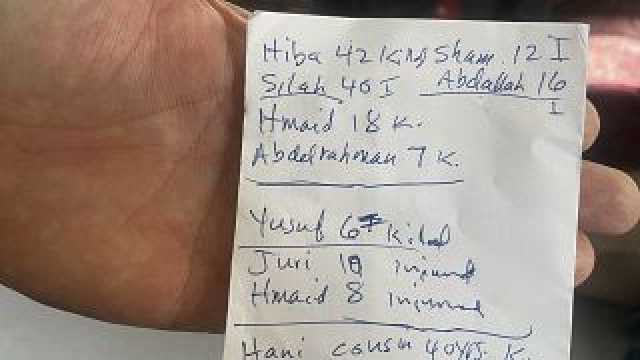 Hiba 42 K Sham 12 I
Silah 40 I Abdallah 16
I
Hmaid 18 K.
Abdelrahman 7 K.
Yusuf 6 Killed
Juri injured
Hmaid 8 injured
Hani cousin 40 K.